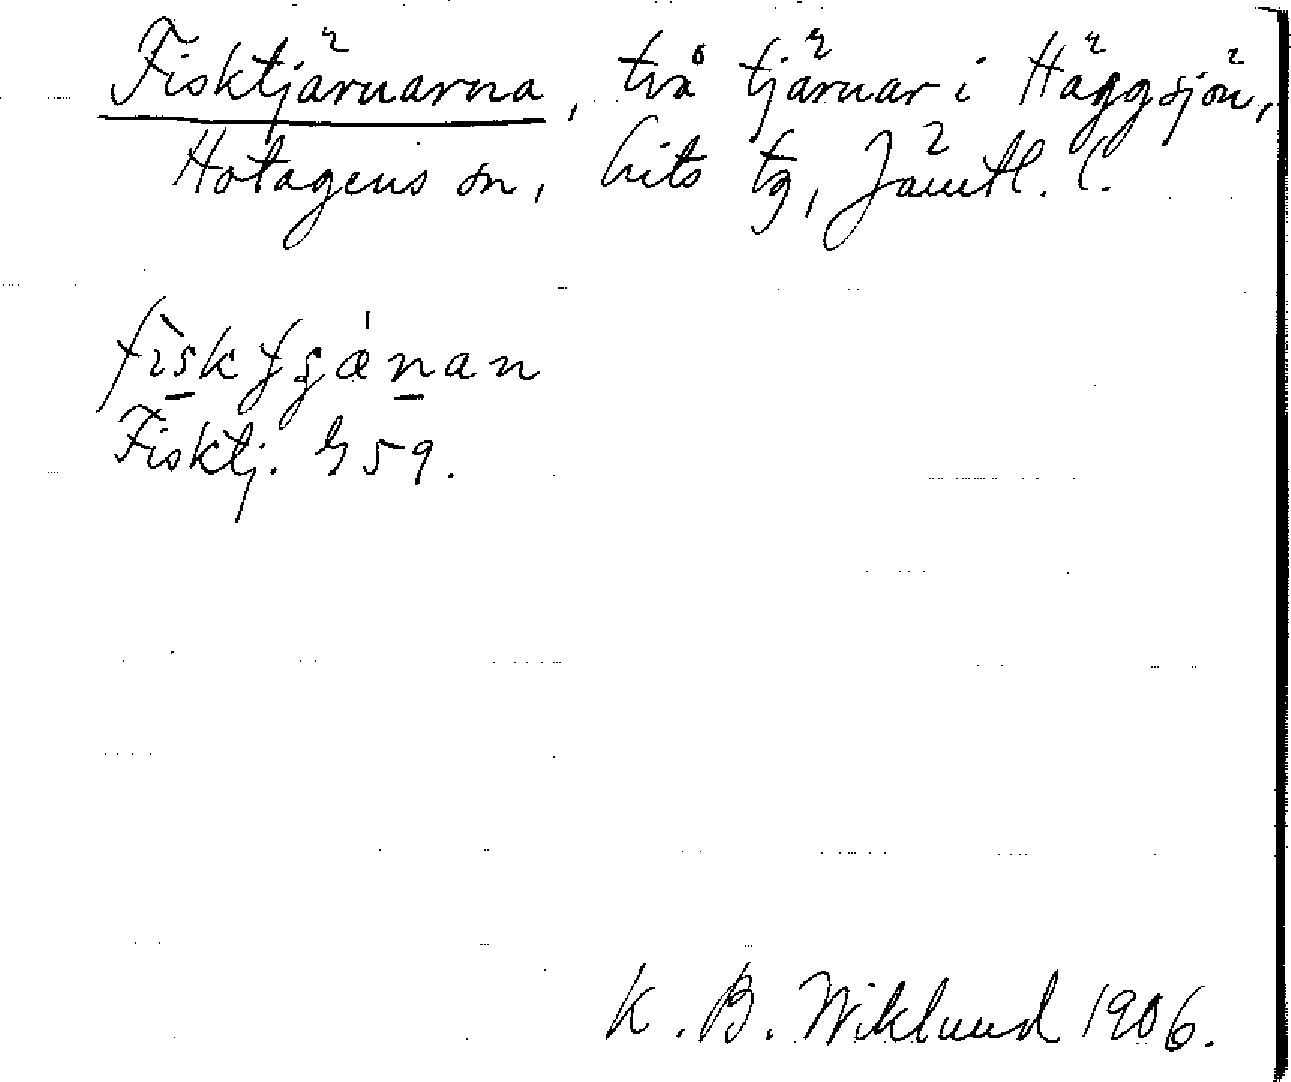 Fisktjärnarna, två tjärnar i Häggsjön,
Hotagens sn, Lits tg, Jämtl. l.
Fisktj. G 59.
K. B. Wiklund 1906.